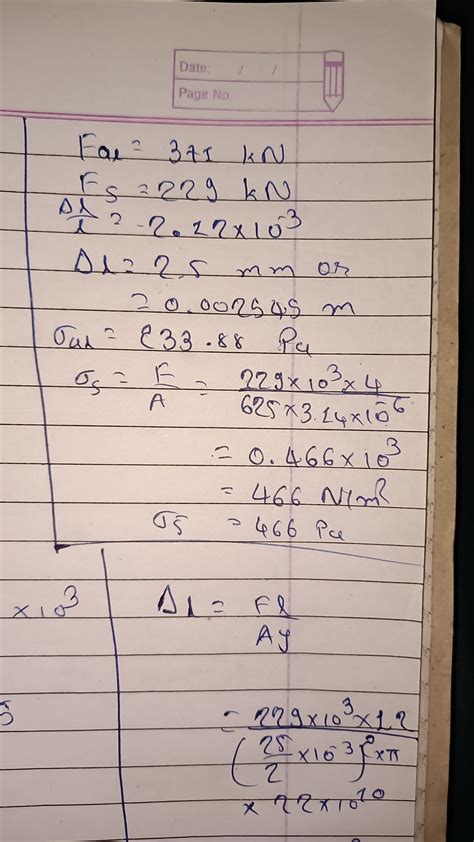 Date: / /
Page No.
Fal = 371 kN
Fs = 229 kN
Δl/l = -2.12×10⁻³
Δl = 2.5 mm or
= 0.002545 m
σal = 233.88 Pa
σs = F/A = 229×10³×4 / 625×3.14×10⁻⁶
= 0.466×10³
= 466 N/m²
σs = 466 Pa
×10³
Δl = Fl/Ay
5
= 229×10³×1.2
(25/2 ×10⁻³)² ×π
× 22×10¹⁰